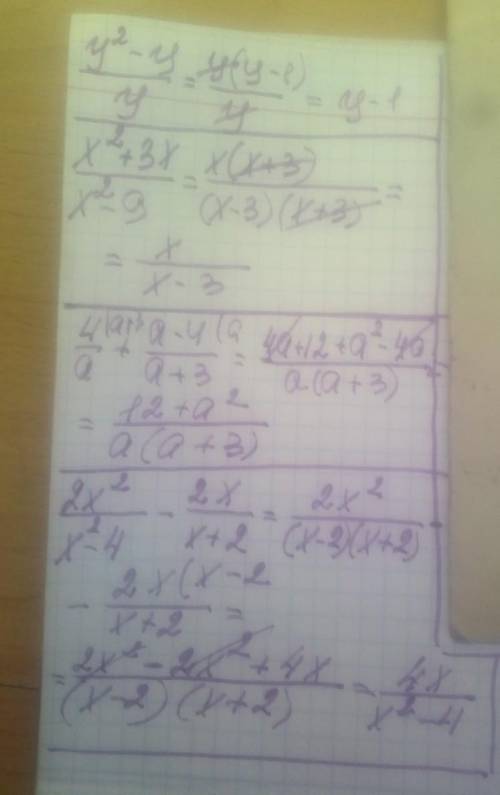 (y² - y)/y = y(y-1)/y = y-1
(x² + 3x)/(x² - 9) = x(x+3)/((x-3)(x+3)) =
= x/(x-3)
4/a (a+3 + (a-4)/(a+3) (a = (4a+12+a²-4a)/(a(a+3)) =
= (12+a²)/(a(a+3))
2x²/(x²-4) - 2x/(x+2) = 2x²/((x-2)(x+2)) -
- 2x(x-2/(x+2) =
= (2x² - 2x² + 4x)/((x-2)(x+2)) = 4x/(x²-4)